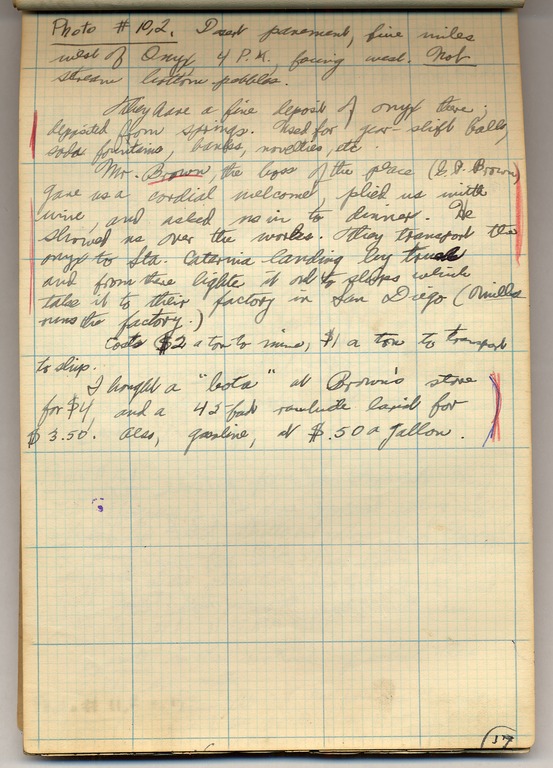 Photo # 19,2. Desert pavement, five miles
west of Onyx, 4 P.M., facing west. Not
stream bottom pebbles.
They have a fine deposit of onyx there,
deposited from springs. Used for gear-shift balls,
soda fountains, banks, novelties, etc.
Mr. Brown, the boss of the place
gave us a cordial welcome, plied us with
wine, and asked us in to dinner. He
showed us over the works. They transport the
onyx to Sta. Catarina landing by truck
and from there lighter it out to ships which
take it to their factory in San Diego (
runs the factory.)
Costs $2 a ton to mine, $1 a ton to transport
to ship.
I bought a "bota" at Brown's store
for $4 and a 42-foot rawhide lariat for
$3.50. Also, gasoline, at $.50 a gallon.
37